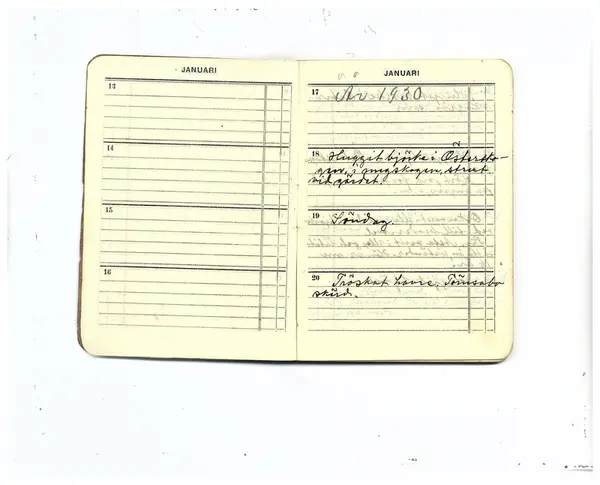 JANUARI
13
14
15
16
JANUARI
17
År 1930
18 Huggit björke i Östersko-
gen, i ungskogen, strret
vid gärdet.
19 Söndag.
20 Tröskat havre. Tomsabo
skörd.